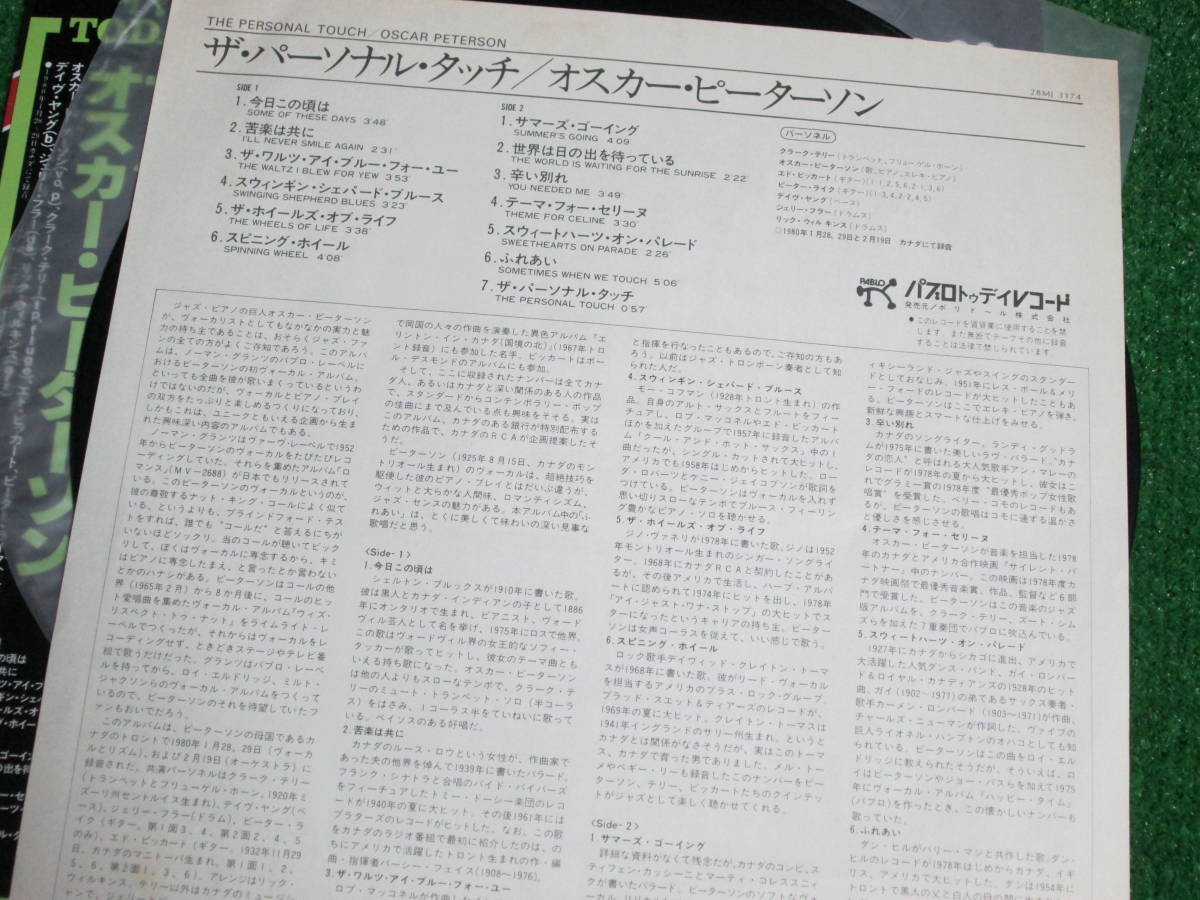 THE PERSONAL TOUCH/OSCAR PETERSON
ザ・パーソナル・タッチ/オスカー・ピーターソン
28MJ 3374
SIDE 1
1.今日この頃は
SOME OF THESE DAYS 3'48"
2.苦楽は共に
I'LL NEVER SMILE AGAIN 2'31"
3.ザ・ワルツ・アイ・ブルー・フォー・ユー
THE WALTZ I BLEW FOR YEW 3'53"
4.スウィンギン・シェパード・ブルース
SWINGING SHEPHERD BLUES 3'23"
5.ザ・ホイールズ・オブ・ライフ
THE WHEELS OF LIFE 3'38"
6.スピニング・ホイール
SPINNING WHEEL 4'08"
SIDE 2
1.サマーズ・ゴーイング
SUMMER'S GOING 4'09"
2.世界は日の出を待っている
THE WORLD IS WAITING FOR THE SUNRISE 2'22"
3.辛い別れ
YOU NEEDED ME 3'49"
4.テーマ・フォー・セリーヌ
THEME FOR CELINE 3'30"
5.スウィートハーツ・オン・パレード
SWEETHEARTS ON PARADE 2'26"
6.ふれあい
SOMETIMES WHEN WE TOUCH 5'06"
7.ザ・パーソナル・タッチ
THE PERSONAL TOUCH 0'57"
パーソネル
クラーク・テリー(トランペット、フリューゲル・ホーン)
オスカー・ピーターソン(歌、ピアノ、エレキ・ピアノ)
エド・ビッカート(ギター)(1-1,2,5,6,2-1,3,6)
ピーター・ライク(ギター)(1-3,4,2-2,4,5)
デイヴ・ヤング(ベース)
ジェリー・フラー(ドラムス)
リック・ウィルキンス(ドラムス)
◎1980年1月28,29日と2月19日 カナダにて録音
PABLO
パブロトゥデイレコード
発売元/ポリドール株式会社
●このレコードを賃貸業に使用することを禁
じます。また無断でテープその他に録音
することは法律で禁じられています。
ジャズ・ピアノの巨人オスカー・ピーターソン
が、ヴォーカリストとしてもなかなかの実力と魅
力の持ち主であることは、おそらくジャズ・ファ
ンの全ての方がよくご存知であろう。このアルバ
ムは、ノーマン・グランツのパブロ・レーベルに
おけるピーターソンの初ヴォーカル・アルバム。
といっても全曲を彼が歌いまくっているというわ
けではないのだが、ヴォーカルとピアノ・プレイ
の双方をたっぷりと楽しめるつくりになっており、
しかもこれは、ユニークともいえる企画から生ま
れた興味深い内容のアルバムでもある。
ノーマン・グランツはヴァーヴ・レーベルで1952
年からピーターソンのヴォーカルをたびたびレコ
ーディングしていた。それらを集めたアルバム「ロ
マンス」(MV-2688)が日本でもリリースされて
いる。このピーターソンのヴォーカルというのが、
彼の尊敬するナット・キング・コールによく似て
いる、というよりも、ブラインドフォード・テス
トをすれば、誰でも"コールだ"と答えるにちが
いないほどソックリ。当のコールが聴いてビック
リして、ぼくはヴォーカルに専念するから、キミ
はピアノに専念したまえ、と言ったとか言わない
とかのハナシがある。ピーターソンはコールの他
界(1965年2月)から8か月後に、コールのヒッ
ト愛唱曲を集めたヴォーカル・アルバム「ウィズ・
リスペクト・トゥ・ナット」をライムライト・レ
ーベルでつくったが、それからはヴォーカルをレ
コーディングせず、ときどきステージやテレビ番
組で歌うだけだった。グランツはパブロ・レーベ
ルを持ってから、ロイ・エルドリッジ、ミルト・
ジャクソンらのヴォーカル・アルバムをつくって
いるので、ピーターソンのそれを待望していたフ
ァンもおいでだろう。
このアルバムは、ピーターソンの母国であるカ
ナダのトロントで1980年1月28、29日(ヴォーカ
ルとリズム)、および2月19日(オーケストラ)に
録音された。共演パーソネルはクラーク・テリー
(トランペットとフリューゲル・ホーン。1920年ミ
ズーリ州セントルイス生まれ)、デイヴ・ヤング(ベ
ース)、ジェリー・フラー(ドラム)、ピーター・ラ
イク(ギター。第1面3、4、第2面2、4、5
のみ)、エド・ビッカート(ギター。1932年11月29
日、カナダのマニトーバ生まれ。第1面1、2、
5、6、第2面1、3、6)。アレンジはリック・
ウィルキンス、テリー以外はカナダのミュージシ
で同国の人々の作曲を演奏した異色アルバム「エ
リントン・イン・カナダ(国境の北)」(1967年トロ
ント録音)にも参加した名手。ビッカートはポー
ル・デスモンドのアルバムにも参加。
そして、ここに収録されたナンバーは全てカナ
ダ人、あるいはカナダと深い関係のある人の作品
で、スタンダードからコンテンポラリー・ポップ
の佳曲にまで及んでいる点も興味をそそる。実は
このアルバム、カナダのある銀行が特別配布する
ための作品で、カナダのRCAが企画提案したそ
うだ。
ピーターソン(1925年8月15日、カナダのモン
トリオール生まれ)のヴォーカルは、超絶技巧を
駆使した彼のピアノ・プレイとはだいぶ違うが、
ウィットと大らかな人間味、ロマンティシズム、
ジャズ・センスの魅力がある。本アルバム中の「ふ
れあい」は、とくに美しくて味わいの深い見事な
歌唱だと思う。
<Side-1>
1.今日この頃は
シェルトン・ブルックスが1910年に書いた歌。
彼は黒人とカナダ・インディアンの子として1886
年にオンタリオで生まれ、ピアニスト、ヴォード
ヴィル芸人として名を挙げ、1975年にロスで他界。
この歌はヴォードヴィル界の女王的なソフィー・
タッカーが歌ってヒットし、彼女のテーマ曲とも
いえる持ち歌になった。オスカー・ピーターソン
は他の人よりもスローなテンポで、クラーク・テ
リーのミュート・トランペット・ソロ(半コーラ
ス)をはさみ、1コーラス半をていねいに歌って
いる。ペイソスのある好唱だ。
2.苦楽は共に
カナダのルース・ロウという女性が、作曲家で
あった夫の他界を悼んで1939年に書いたバラード。
フランク・シナトラと合唱のパイド・パイパーズ
をフィーチュアしたトミー・ドーシー楽団のレコ
ードが1940年の夏に大ヒット。その後1961年には
プラターズのレコードがヒットした。なお、この歌
をカナダのラジオ番組で最初に紹介したのは、の
ちにアメリカで活躍したトロント生まれの作・編
曲・指揮者パーシー・フェイス(1908〜1976)。
3.ザ・ワルツ・アイ・ブルー・フォー・ユー
と指揮を行なったこともあるので、ご存知の方もあ
ろう。以前はジャズ・トロンボーン奏者として知
られた人だ。
4.スウィンギン・シェパード・ブルース
モー・コフマン(1928年トロント生まれ)の作
品。自身のアルト・サックスとフルートをフィー
チュアし、ロブ・マッコネルやエド・ビッカート
ほかを加えたグループで1957年に録音したアルバ
ム「クール・アンド・ホット・サックス」中の1
曲だったが、シングル・カットされて大ヒットし、
アメリカでも1958年はじめからヒットした。ロー
ダ・ロバーツとケニー・ジェイコブソンが歌詞を
つけている。ピーターソンはヴォーカルを入れず
思い切りスローなテンポでブルース・フィーリン
グ豊かなピアノ・ソロを聴かせる。
5.ザ・ホイールズ・オブ・ライフ
ジノ・ヴァネリが1978年に書いた歌。ジノは1952
年モントリオール生まれのシンガー・ソングライ
ター。1968年にカナダRCAと契約したことがあ
るが、その後アメリカで生活し、ハーブ・アルパ
ートに認められて1974年にヒットを出し、1978年
「アイ・ジャスト・ワナ・ストップ」の大ヒットでス
ターになったというキャリアの持ち主。ピーター
ソンは女声コーラスを従えて、いい感じで歌う。
6.スピニング・ホイール
ロック歌手デイヴィッド・クレイトン・トーマ
スが1968年に書いた歌。彼がリード・ヴォーカル
を担当するアメリカのブラス・ロック・グループ、
ブラッド・スエット&ティアーズのレコードが、
1969年の夏に大ヒット。クレイトン・トーマスは
1941年イングランドのサリー州生まれ、というと
カナダとは関係がなさそうだが、実はこのトーマ
ス、カナダで育った男でありました。メル・トー
メやペギー・リーも録音したこのナンバーをピー
ターソン、テリー、ビッカートたちのクインテッ
トがジャズとして楽しく聴かせてくれる。
<Side-2>
1.サマーズ・ゴーイング
詳細な資料がなくて残念だが、カナダのコンビ、ス
ティフェン・カッシーニとマーティ・コレススニィ
クが書いたバラード。ピーターソンのソフトなヴォ
イキシーランド・ジャズやスイングのスタンダー
ドとしておなじみ。1951年にレス・ポール&メリ
ー・フォードのレコードが大ヒットしたこともあ
る。ピーターソンはここでエレキ・ピアノを弾き、
新鮮な興趣とスマートな仕上げをみせる。
3.辛い別れ
カナダのソングライター、ランディ・グッドラ
ムが1975年に書いた美しいラヴ・バラード。"カナ
ダの恋人"と呼ばれる大人気歌手アン・マレーの
レコードが1978年の夏から大ヒットし、彼女はこ
れでグラミー賞の1978年度"最優秀ポップ女性歌
唱賞"を受賞した。ペリー・コモのレコードもあ
るが、ピーターソンの歌唱はコモに通ずる温かさ
と優しさを感じさせる。
4.テーマ・フォー・セリーヌ
オスカー・ピーターソンが音楽を担当した1978
年のカナダとアメリカ合作映画「サイレント・パ
ートナー」中のナンバー。この映画は1978年度カ
ナダ映画祭で最優秀音楽賞、作品、監督など6部
門で受賞した。ピーターソンはこの音楽のジャズ
版アルバムを、クラーク・テリー、ズート・シム
ズらを加えた7重奏団でパブロに吹込んでいる。
5.スウィートハーツ・オン・パレード
1927年にカナダからシカゴに進出、アメリカで
大活躍した人気ダンス・バンド、ガイ・ロンバー
ド&ロイヤル・カナディアンズの1928年のヒット
曲。ガイ(1902〜1977)の弟であるサックス奏者・
歌手カーメン・ロンバード(1903〜1971)が作曲、
チャールズ・ニューマンが作詞した。ヴァイブの
巨人ライオネル・ハンプトンのオハコとしても知
られている。ピーターソンはこの曲をロイ・エル
ドリッジに教えられたそうだが、そういえば、ロ
イはピーターソンやジョー・パスらを加えて1975
年にヴォーカル・アルバム「ハッピー・タイム」
(パブロ)を作ったとき、この懐かしいナンバーも
歌っていた。
6.ふれあい
ダン・ヒルがバリー・マンと共作した歌。ダン・
ヒルのレコードが1978年はじめからカナダ、イギ
リス、アメリカで大ヒットした。ダンは1954年に
トロントで黒人の父と白人の母の間に
TOD
オスカー・ピーターソン